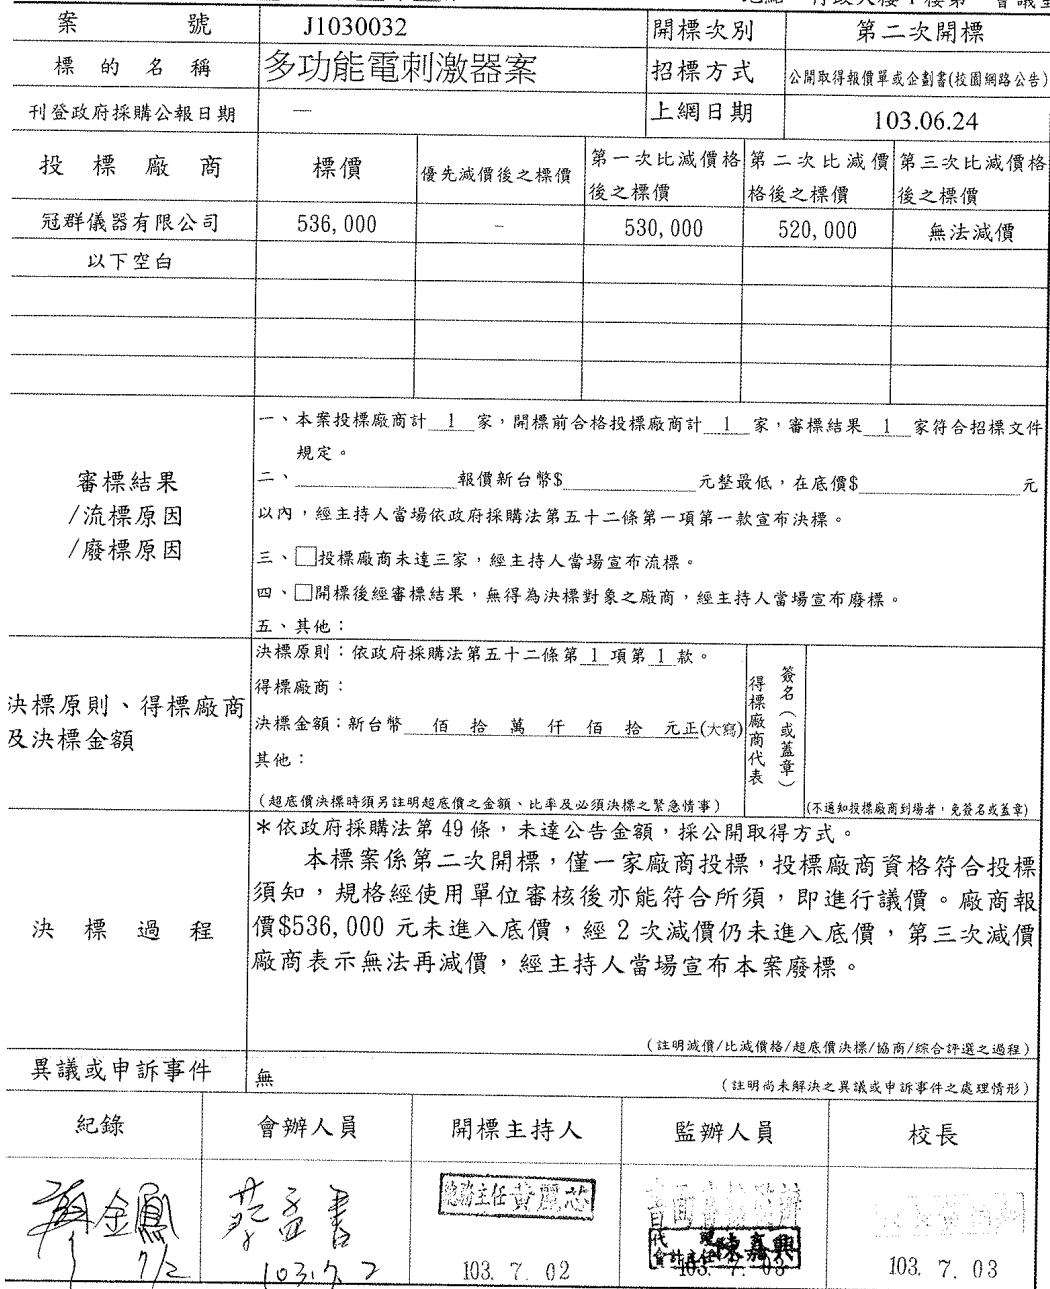 案 號 J1030032 開標次別 第二次開標
標 的 名 稱 多功能電刺激器案 招標方式 公開取得報價單或企劃書(校園網路公告)
刊登政府採購公報日期 — 上網日期 103.06.24
投 標 廠 商 標價 優先減價後之標價 第一次比減價格後之標價 第二次比減價格後之標價 第三次比減價格後之標價
冠群儀器有限公司 536,000 – 530,000 520,000 無法減價
以下空白
審標結果
/流標原因
/廢標原因
一、本案投標廠商計 1 家，開標前合格投標廠商計 1 家，審標結果 1 家符合招標文件
規定。
二、 報價新台幣$ 元整最低，在底價$ 元
以內，經主持人當場依政府採購法第五十二條第一項第一款宣布決標。
三、□投標廠商未達三家，經主持人當場宣布流標。
四、□開標後經審標結果，無得為決標對象之廠商，經主持人當場宣布廢標。
五、其他：
決標原則、得標廠商
及決標金額
決標原則：依政府採購法第五十二條第 1 項第 1 款。
得標廠商：
決標金額：新台幣 佰 拾 萬 仟 佰 拾 元正(大寫)
其他：
(超底價決標時須另註明超底價之金額、比率及必須決標之緊急情事)
得標廠商代表
簽名(或蓋章)
(不通知投標廠商到場者，免簽名或蓋章)
決 標 過 程
＊依政府採購法第 49 條，未達公告金額，採公開取得方式。
本標案係第二次開標，僅一家廠商投標，投標廠商資格符合投標
須知，規格經使用單位審核後亦能符合所須，即進行議價。廠商報
價$536,000 元未進入底價，經 2 次減價仍未進入底價，第三次減價
廠商表示無法再減價，經主持人當場宣布本案廢標。
(註明減價/比減價格/超底價決標/協商/綜合評選之過程)
異議或申訴事件 無 (註明尚未解決之異議或申訴事件之處理情形)
紀錄 會辦人員 開標主持人 監辦人員 校長
金鳳
7/2
103.7.2
總務主任黃麗芯
103. 7. 02
代理
會計主任陳嘉興
103. 7. 03
103. 7. 03